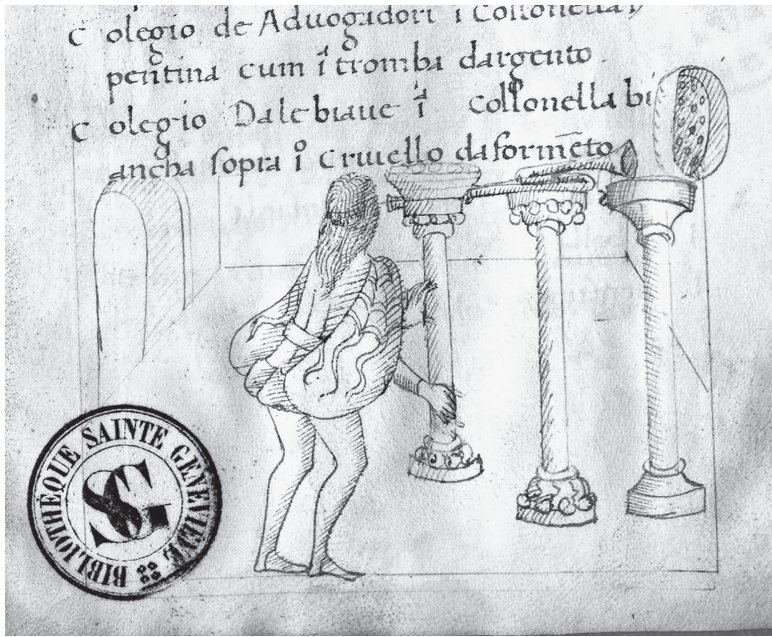 C olegio de Aduogadori i Collonella
pentina cum ī tromba dargento
C olegio Dalebiaue ī Collonella bi
ancha sopra ı̊ Criuello daform̄eto
BIBLIOTHÈQUE SAINTE GENEVIEVE
SG